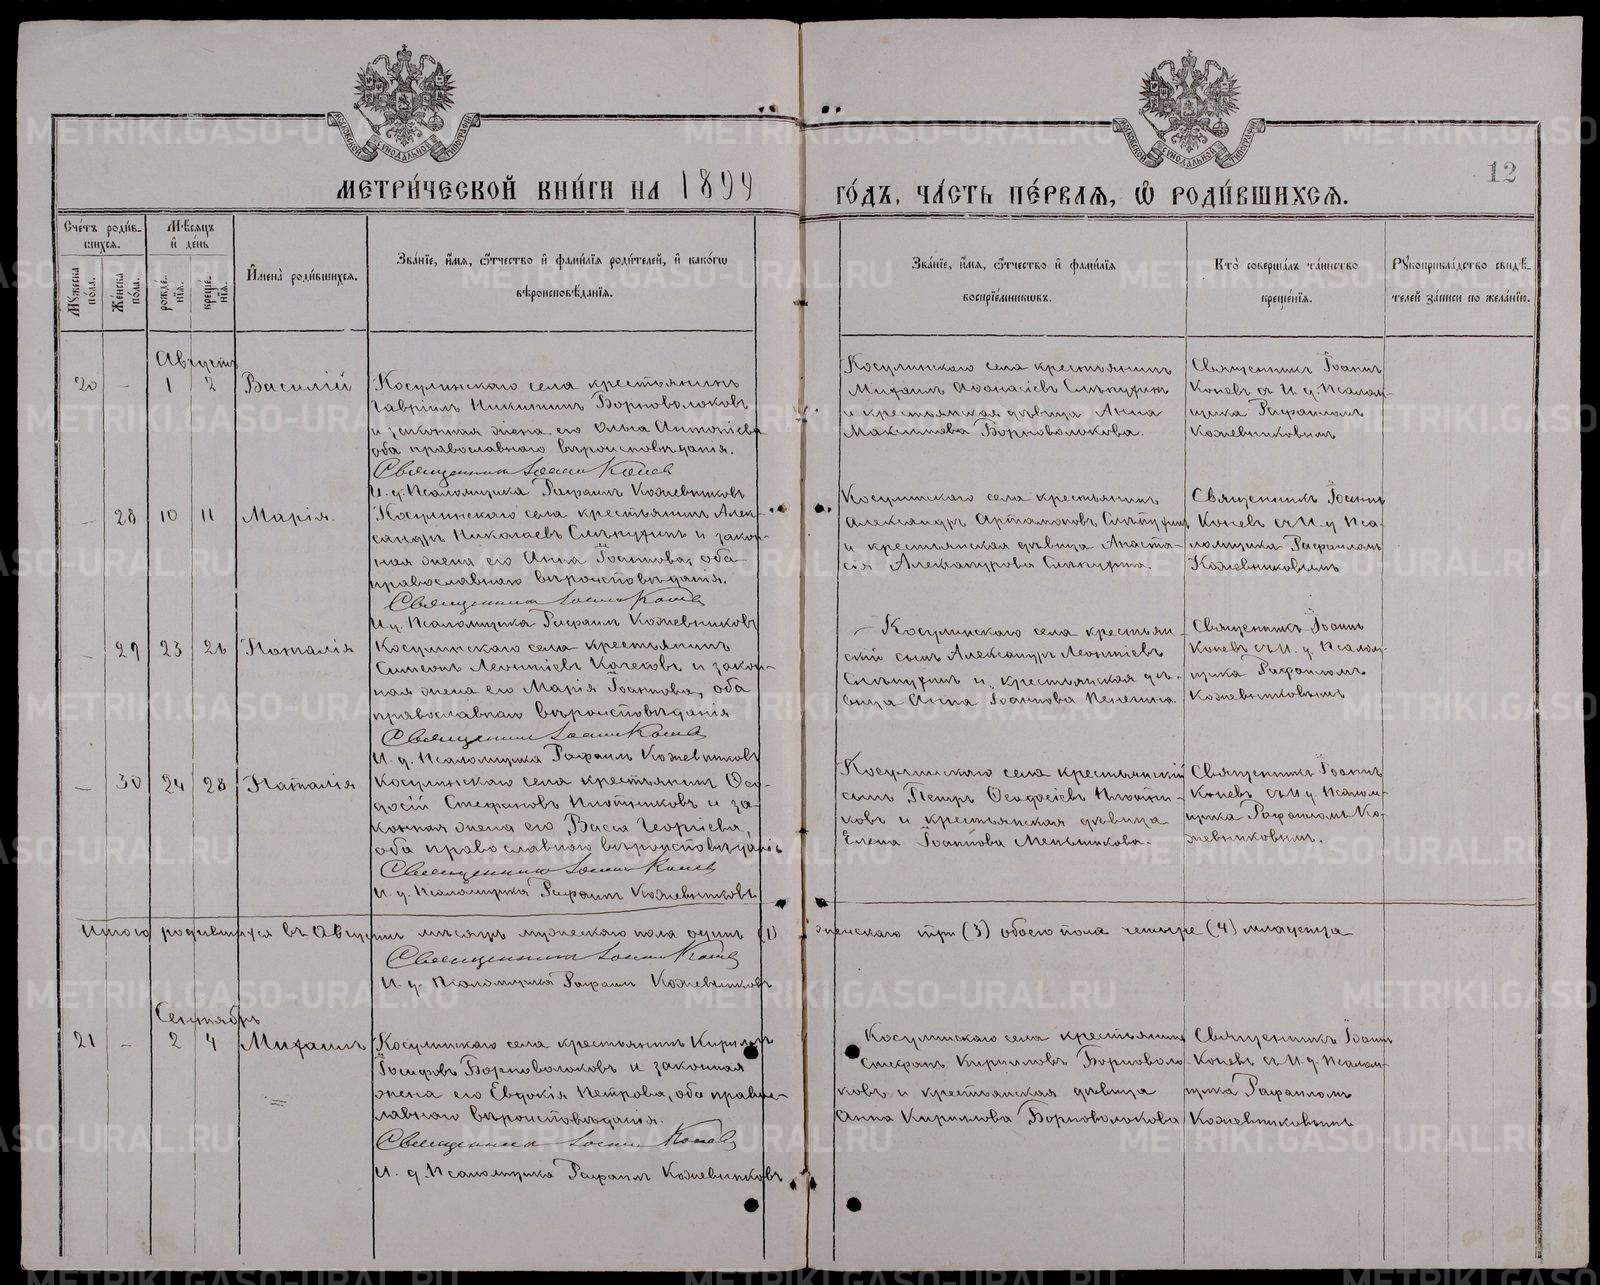 12
МЕТРИ́ЧЕСКОЙ КНИ́ГИ НА 1899 ГО́ДЪ, ЧА́СТЬ ПЕ́РВАѦ, Ѡ҆ РОДИ́ВШИХСѦ.
Сче́тъ роди́в-
шихсѧ.
Мꙋ́жеска по́ла.
Же́нска по́ла.
Мѣ́сѧцъ
и҆ де́нь
рожде́-
нїѧ.
креще́-
нїѧ.
И҆мена̀ роди́вшихсѧ.
Зва́нїе, и҆́мѧ, ѻ҆́тчество и҆ фами́лїѧ роди́телей, и҆ како́гѡ
вѣроисповѣ́данїѧ.
Зва́нїе, и҆́мѧ, ѻ҆́тчество и҆ фами́лїѧ
воспрїе́мникѡвъ.
Кто̀ соверша́лъ та́инство
креще́нїѧ.
Рꙋкоприкла́дство свидѣ́-
телей за́писи по жела́нїю.
Августъ
20 - 1 2 Василій
Косулинскаго села крестьянинъ
Гавріилъ Никитинъ Борноволоковъ
и законная жена его Ольга Антоніева
оба православнаго вѣроисповѣданія.
Священникъ Іоаннъ Коневъ
И. д. Псаломщика Рафаилъ Кожевниковъ
Косулинскаго села крестьянинъ
Михаилъ Аѳанасіевъ Слѣпухинъ
и крестьянская дѣвица Анна
Максимова Борноволокова.
Священникъ Іоаннъ
Коневъ съ И. д. Псалом-
щика Рафаиломъ
Кожевниковымъ
- 28 10 11 Марія
Косулинскаго села крестьянинъ Алек-
сандръ Николаевъ Слѣпухинъ и закон-
ная жена его Анна Іоаннова, оба
православнаго вѣроисповѣданія.
Священникъ Іоаннъ Коневъ
И. д. Псаломщика Рафаилъ Кожевниковъ
Косулинскаго села крестьянинъ
Александръ Артамоновъ Слѣпухинъ
и крестьянская дѣвица Анаста-
сія Александрова Слѣпухина
Священникъ Іоаннъ
Коневъ съ И. д. Пса-
ломщика Рафаиломъ
Кожевниковымъ
- 29 23 26 Наталія
Косулинскаго села крестьянинъ
Симеонъ Леонтіевъ Качековъ и закон-
ная жена его Марія Іоаннова, оба
православнаго вѣроисповѣданія
Священникъ Іоаннъ Коневъ
И. д. Псаломщика Рафаилъ Кожевниковъ
Косулинскаго села крестьян-
скій сынъ Александръ Леонтіевъ
Слѣпухинъ и крестьянская дѣ-
вица Анна Іоаннова
Священникъ Іоаннъ
Коневъ съ И. д. Псалом-
щика Рафаиломъ
Кожевниковымъ
- 30 24 28 Наталія
Косулинскаго села крестьянинъ Ѳео-
досій Стефановъ Плотниковъ и за-
конная жена его Васса Георгіева,
оба православнаго вѣроисповѣданія
Священникъ Іоаннъ Коневъ
И. д. Псаломщика Рафаилъ Кожевниковъ
Косулинскаго села крестьянскій
сынъ Петръ Ѳеодосіевъ Плотни-
ковъ и крестьянская дѣвица
Елена Іоаннова Меньшикова.
Священникъ Іоаннъ
Коневъ съ И. д. Псалом-
щика Рафаиломъ Ко-
жевниковымъ.
Итого родившихся въ Августѣ мѣсяцѣ мужескаго пола одинъ (1) женскаго три (3) обоего пола четыре (4) младенца
Священникъ Іоаннъ Коневъ
И. д. Псаломщика Рафаилъ Кожевниковъ
Сентябрь
21 - 2 4 Михаилъ
Косулинскаго села крестьянинъ Кириллъ
Іосифовъ Борноволоковъ и законная
жена его Евдокія Петрова, оба право-
славнаго вѣроисповѣданія.
Священникъ Іоаннъ Коневъ
И. д. Псаломщика Рафаилъ Кожевниковъ
Косулинскаго села крестьянинъ
Стефанъ Кирилловъ Борноволо-
ковъ и крестьянская дѣвица
Анна Кириллова Борноволокова
Священникъ Іоаннъ
Коневъ съ И. д. Псалом-
щика Рафаиломъ
Кожевниковымъ
METRIKI.GASO-URAL.RU